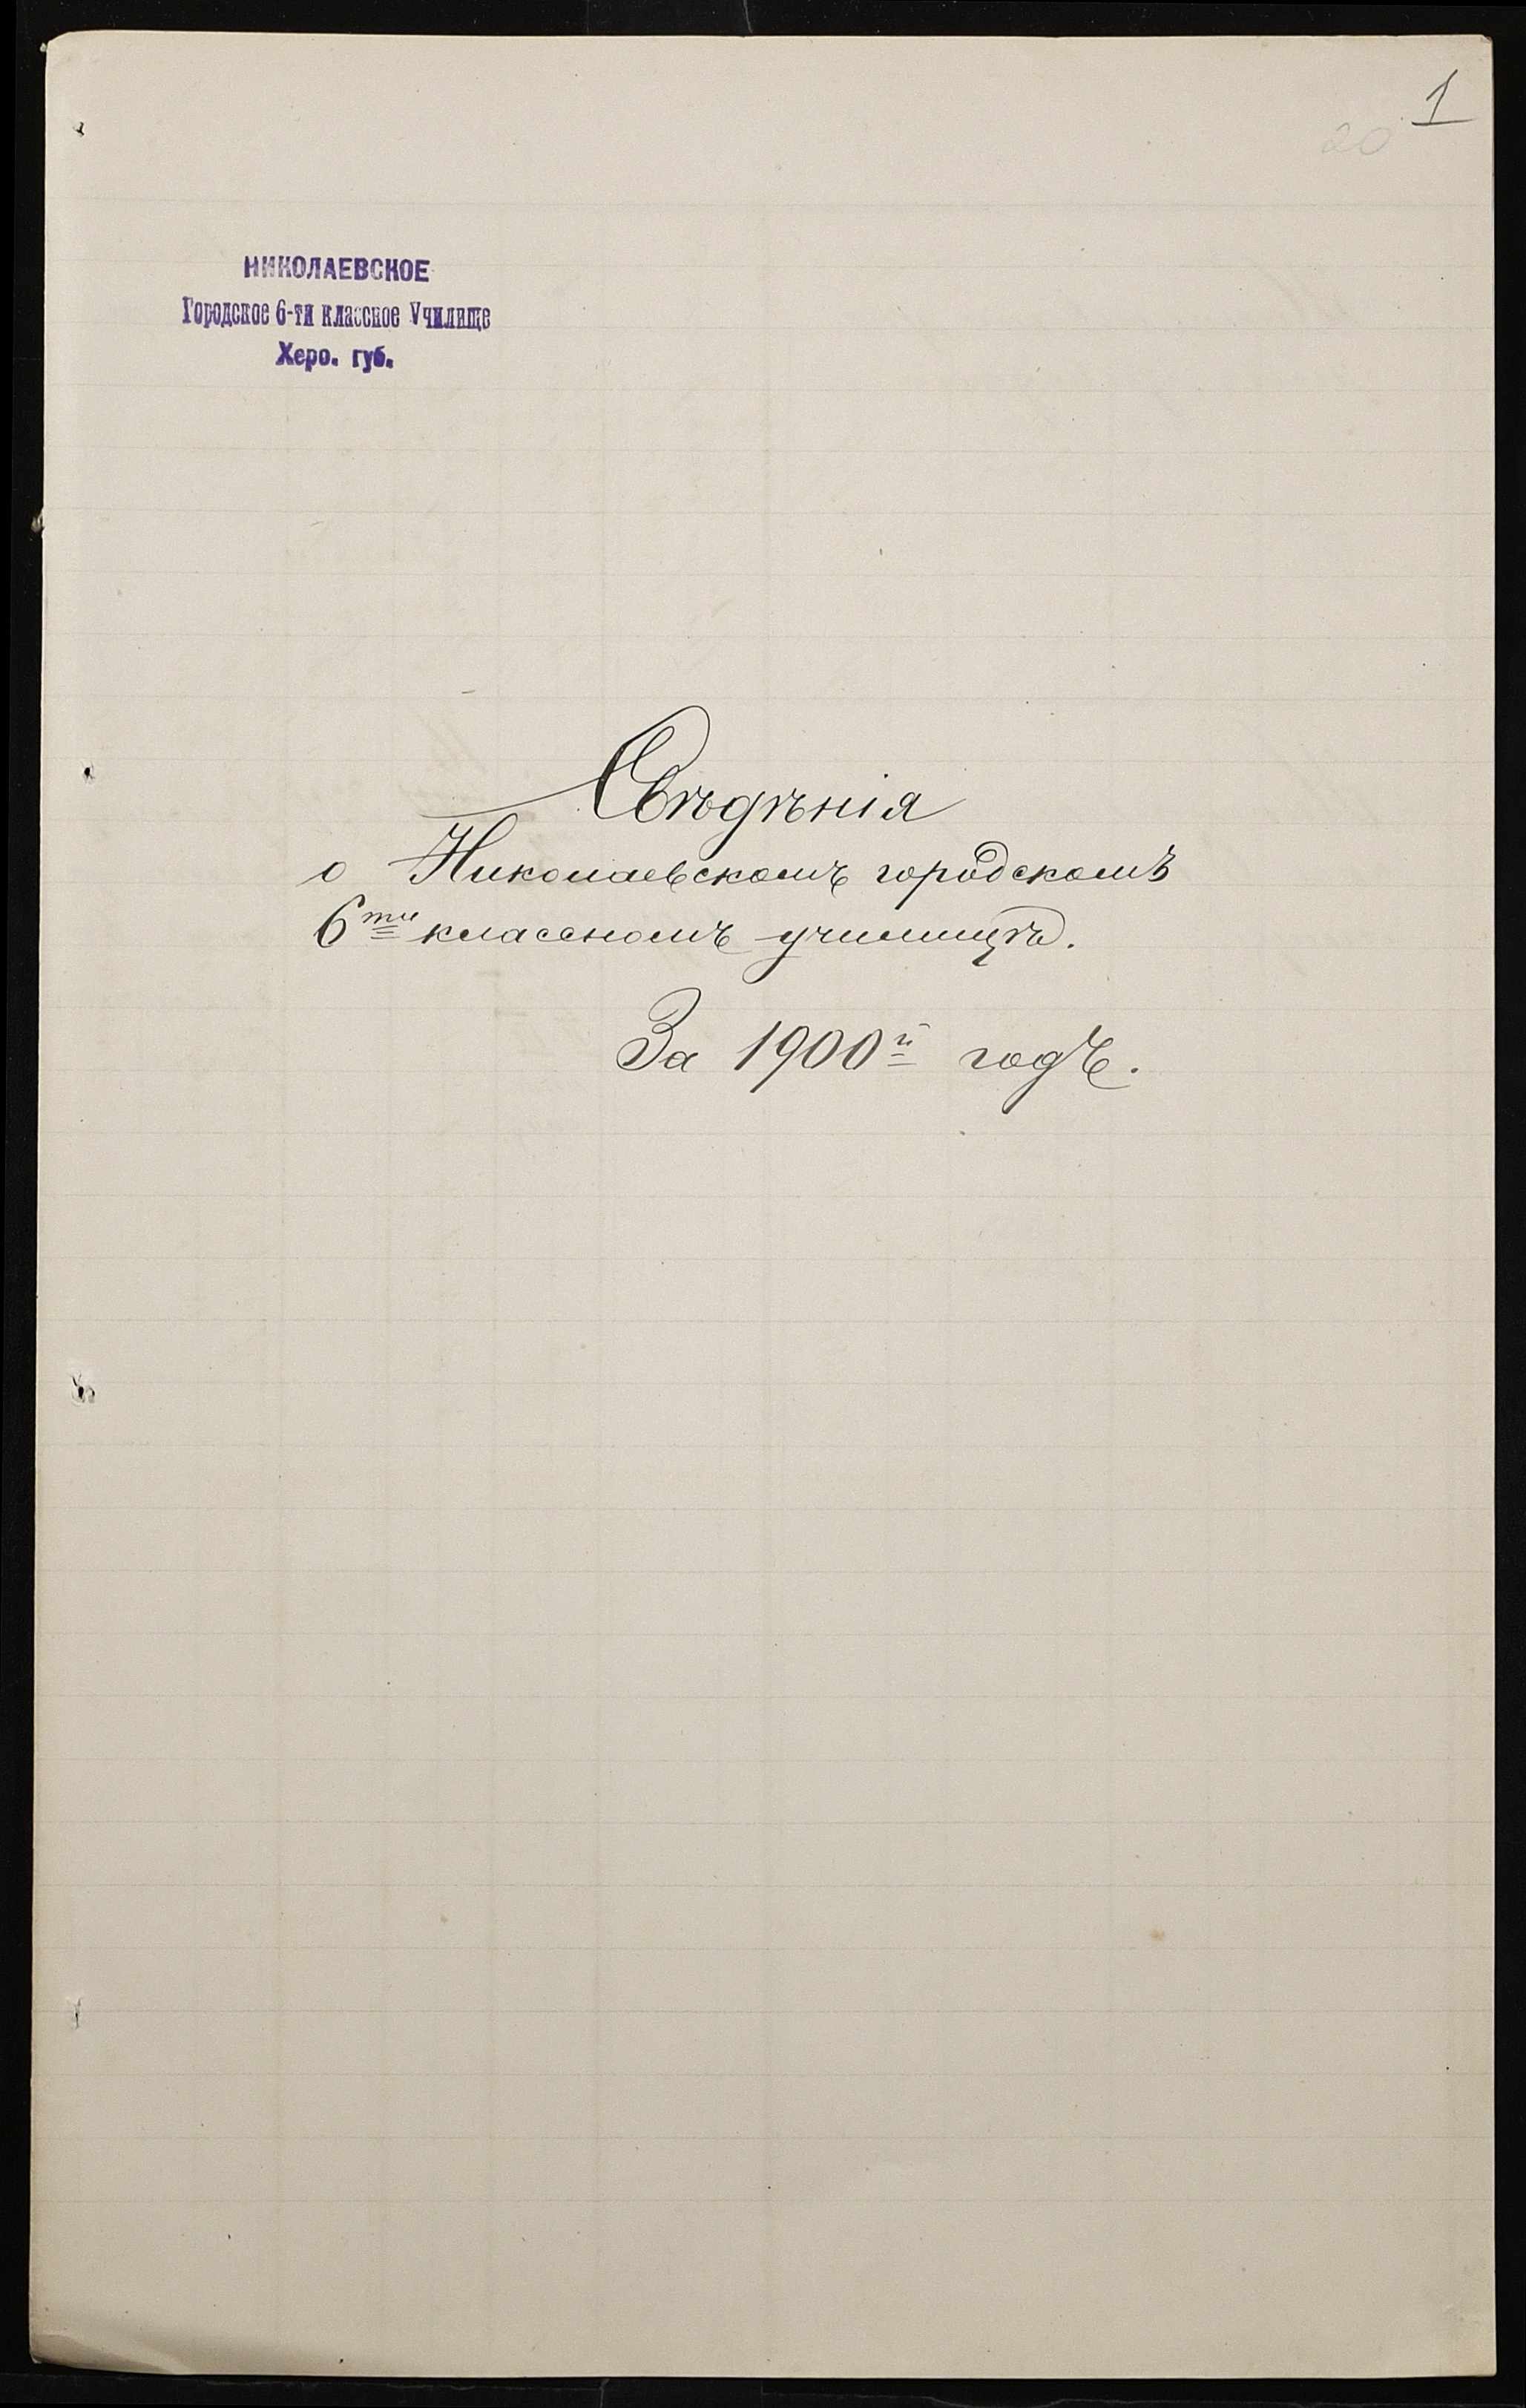 1
20
НИКОЛАЕВСКОЕ
Городское 6-ти классное Училище
Херо. губ.
Свѣдѣнія
о Николаевскомъ городскомъ
6ти классномъ училищѣ.
За 1900й годъ.